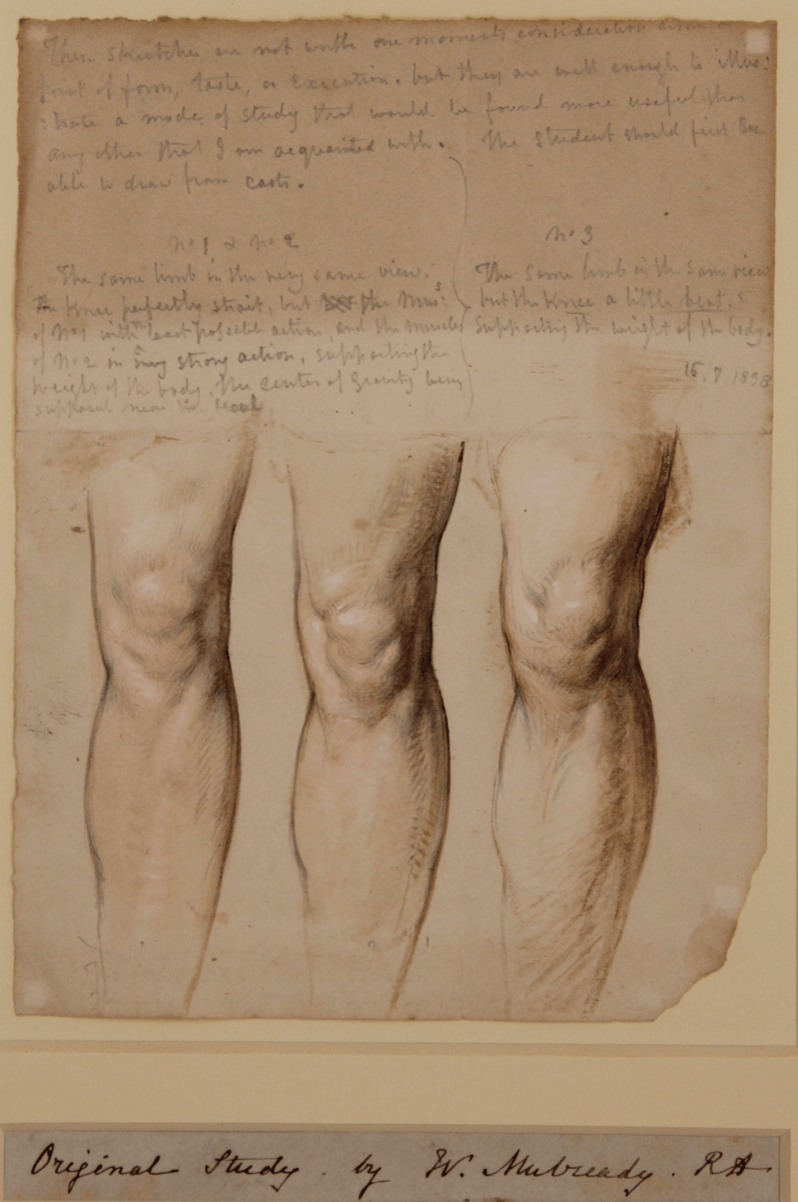 These sketches are not worth one moments consideration
point of form, taste, or Execution. but they are well enough to illus:
:trate a mode of study that would be found more useful than
any other that I am acquainted with. The Student should first be
able to draw from casts.
No 1 & No 2
The same limb in the very same view.
The Knee perfectly strait, but the Muss:
of No 1 with least possible action, and the muscles
of No 2 in very strong action, supporting the
weight of the body, the center of Gravity being
supposed near the heel
No 3
The same limb in the same view
but the Knee a little bent,
supporting the weight of the body.
15/7 1838
Original Study by W. Mulready. RA